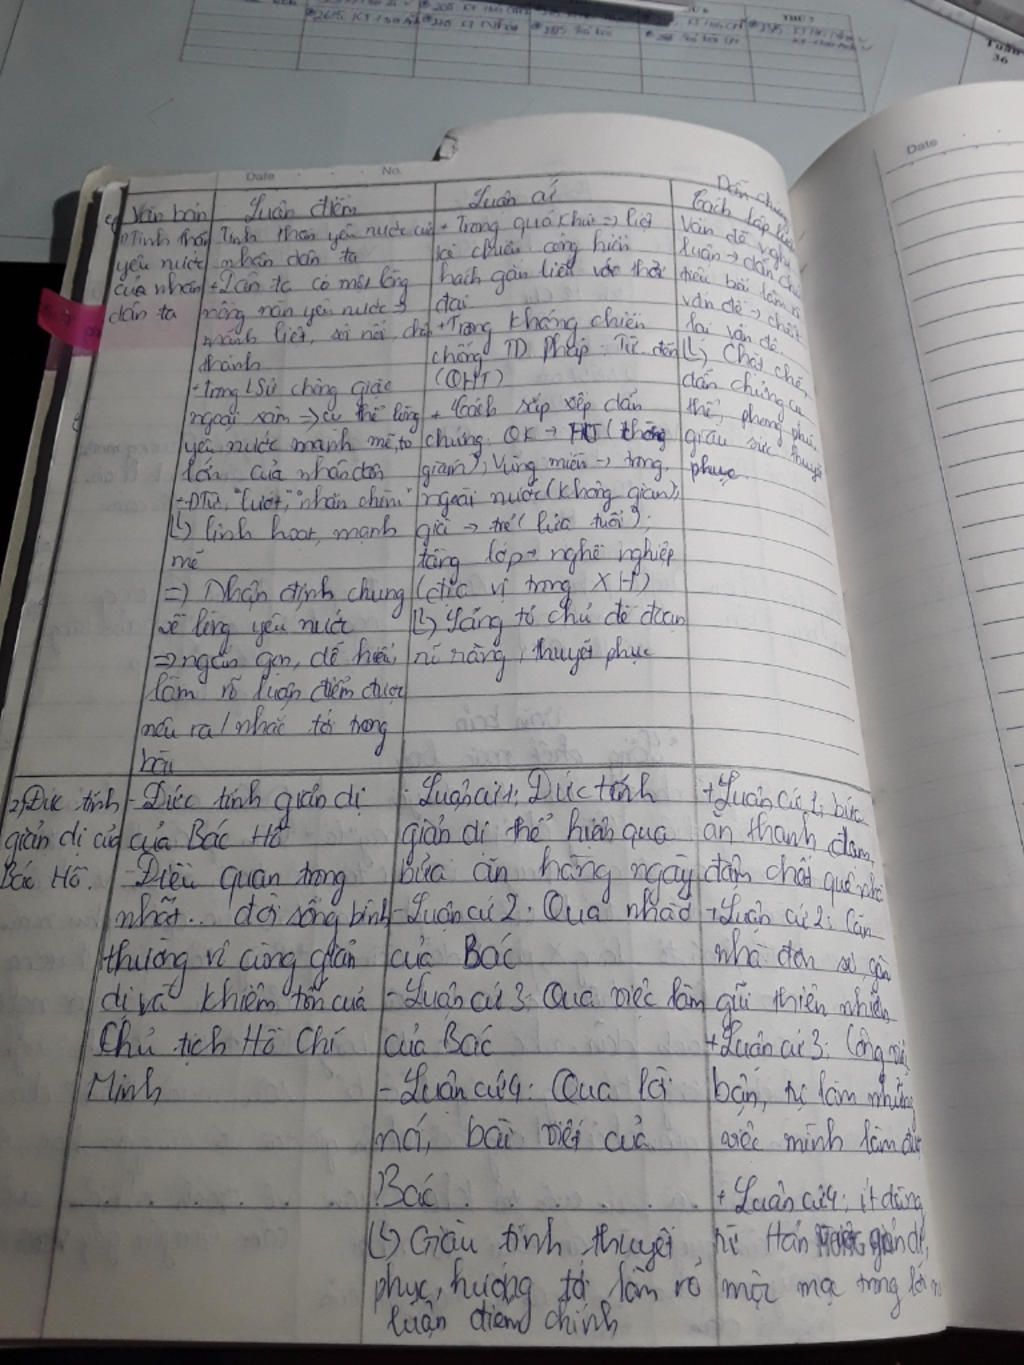 THỨ 7
Tuần
36
Date
No.
Date
Văn bản
Luận điểm
Luận cứ
Dẫn chứng
Cách lập luận
1) Tinh thần
yêu nước
của nhân
dân ta
Tinh thần yêu nước của
nhân dân ta
+ Dân ta có một lòng
nồng nàn yêu nước →
mãnh liệt, sôi nổi, chân
thành
- Trong LSử chống giặc
ngoại xâm → cụ thể lòng
yêu nước mạnh mẽ, to
lớn của nhân dân
- ĐTừ: "lướt", "nhấn chìm"
↳ linh hoạt, mạnh
mẽ
=> Nhận định chung
về lòng yêu nước
=> ngắn gọn, dễ hiểu,
làm rõ luận điểm được
nêu ra / nhắc tới trong
bài
+ Trong quá khứ => liệt
kê chuẩn công hiển
hách gắn liền với thời
đại
+ Trong kháng chiến
chống TD Pháp: Từ đến
(QHT)
+ Cách sắp xếp dẫn
chứng: QK → HT (thời
gian); Vùng miền → trong,
ngoài nước (không gian);
già → trẻ (lứa tuổi);
tầng lớp → nghề nghiệp
(địa vị trong XH)
↳ Sáng tỏ chủ đề đoạn
rõ ràng, thuyết phục
Vấn đề nghị
luận → dẫn chứng
tiêu bài làm rõ
vấn đề → chốt
lại vấn đề.
↳ Chặt chẽ,
dẫn chứng cụ
thể, phong phú,
giàu sức thuyết
phục
2) Đức tính
giản dị của
Bác Hồ.
- Đức tính giản dị
của Bác Hồ
- Điều quan trọng
nhất... đời sống bình
thường vô cùng giản
dị và khiêm tốn của
Chủ tịch Hồ Chí
Minh
- Luận cứ 1: Đức tính
giản dị thể hiện qua
bữa ăn hằng ngày
- Luận cứ 2: Qua nhà ở
của Bác
- Luận cứ 3: Qua việc làm
của Bác
- Luận cứ 4: Qua lời
nói, bài viết của
Bác
↳ Giàu tính thuyết
phục, hướng tới làm rõ
luận điểm chính
+ Luận cứ 1: bữa
ăn thanh đạm,
đậm chất quê nhà
+ Luận cứ 2: Căn
nhà đơn sơ, gần
gũi thiên nhiên
+ Luận cứ 3: Công việc
bận, tự làm những
việc mình làm được
+ Luận cứ 4: ít dùng
từ Hán giản dị,
mộc mạc trong lời